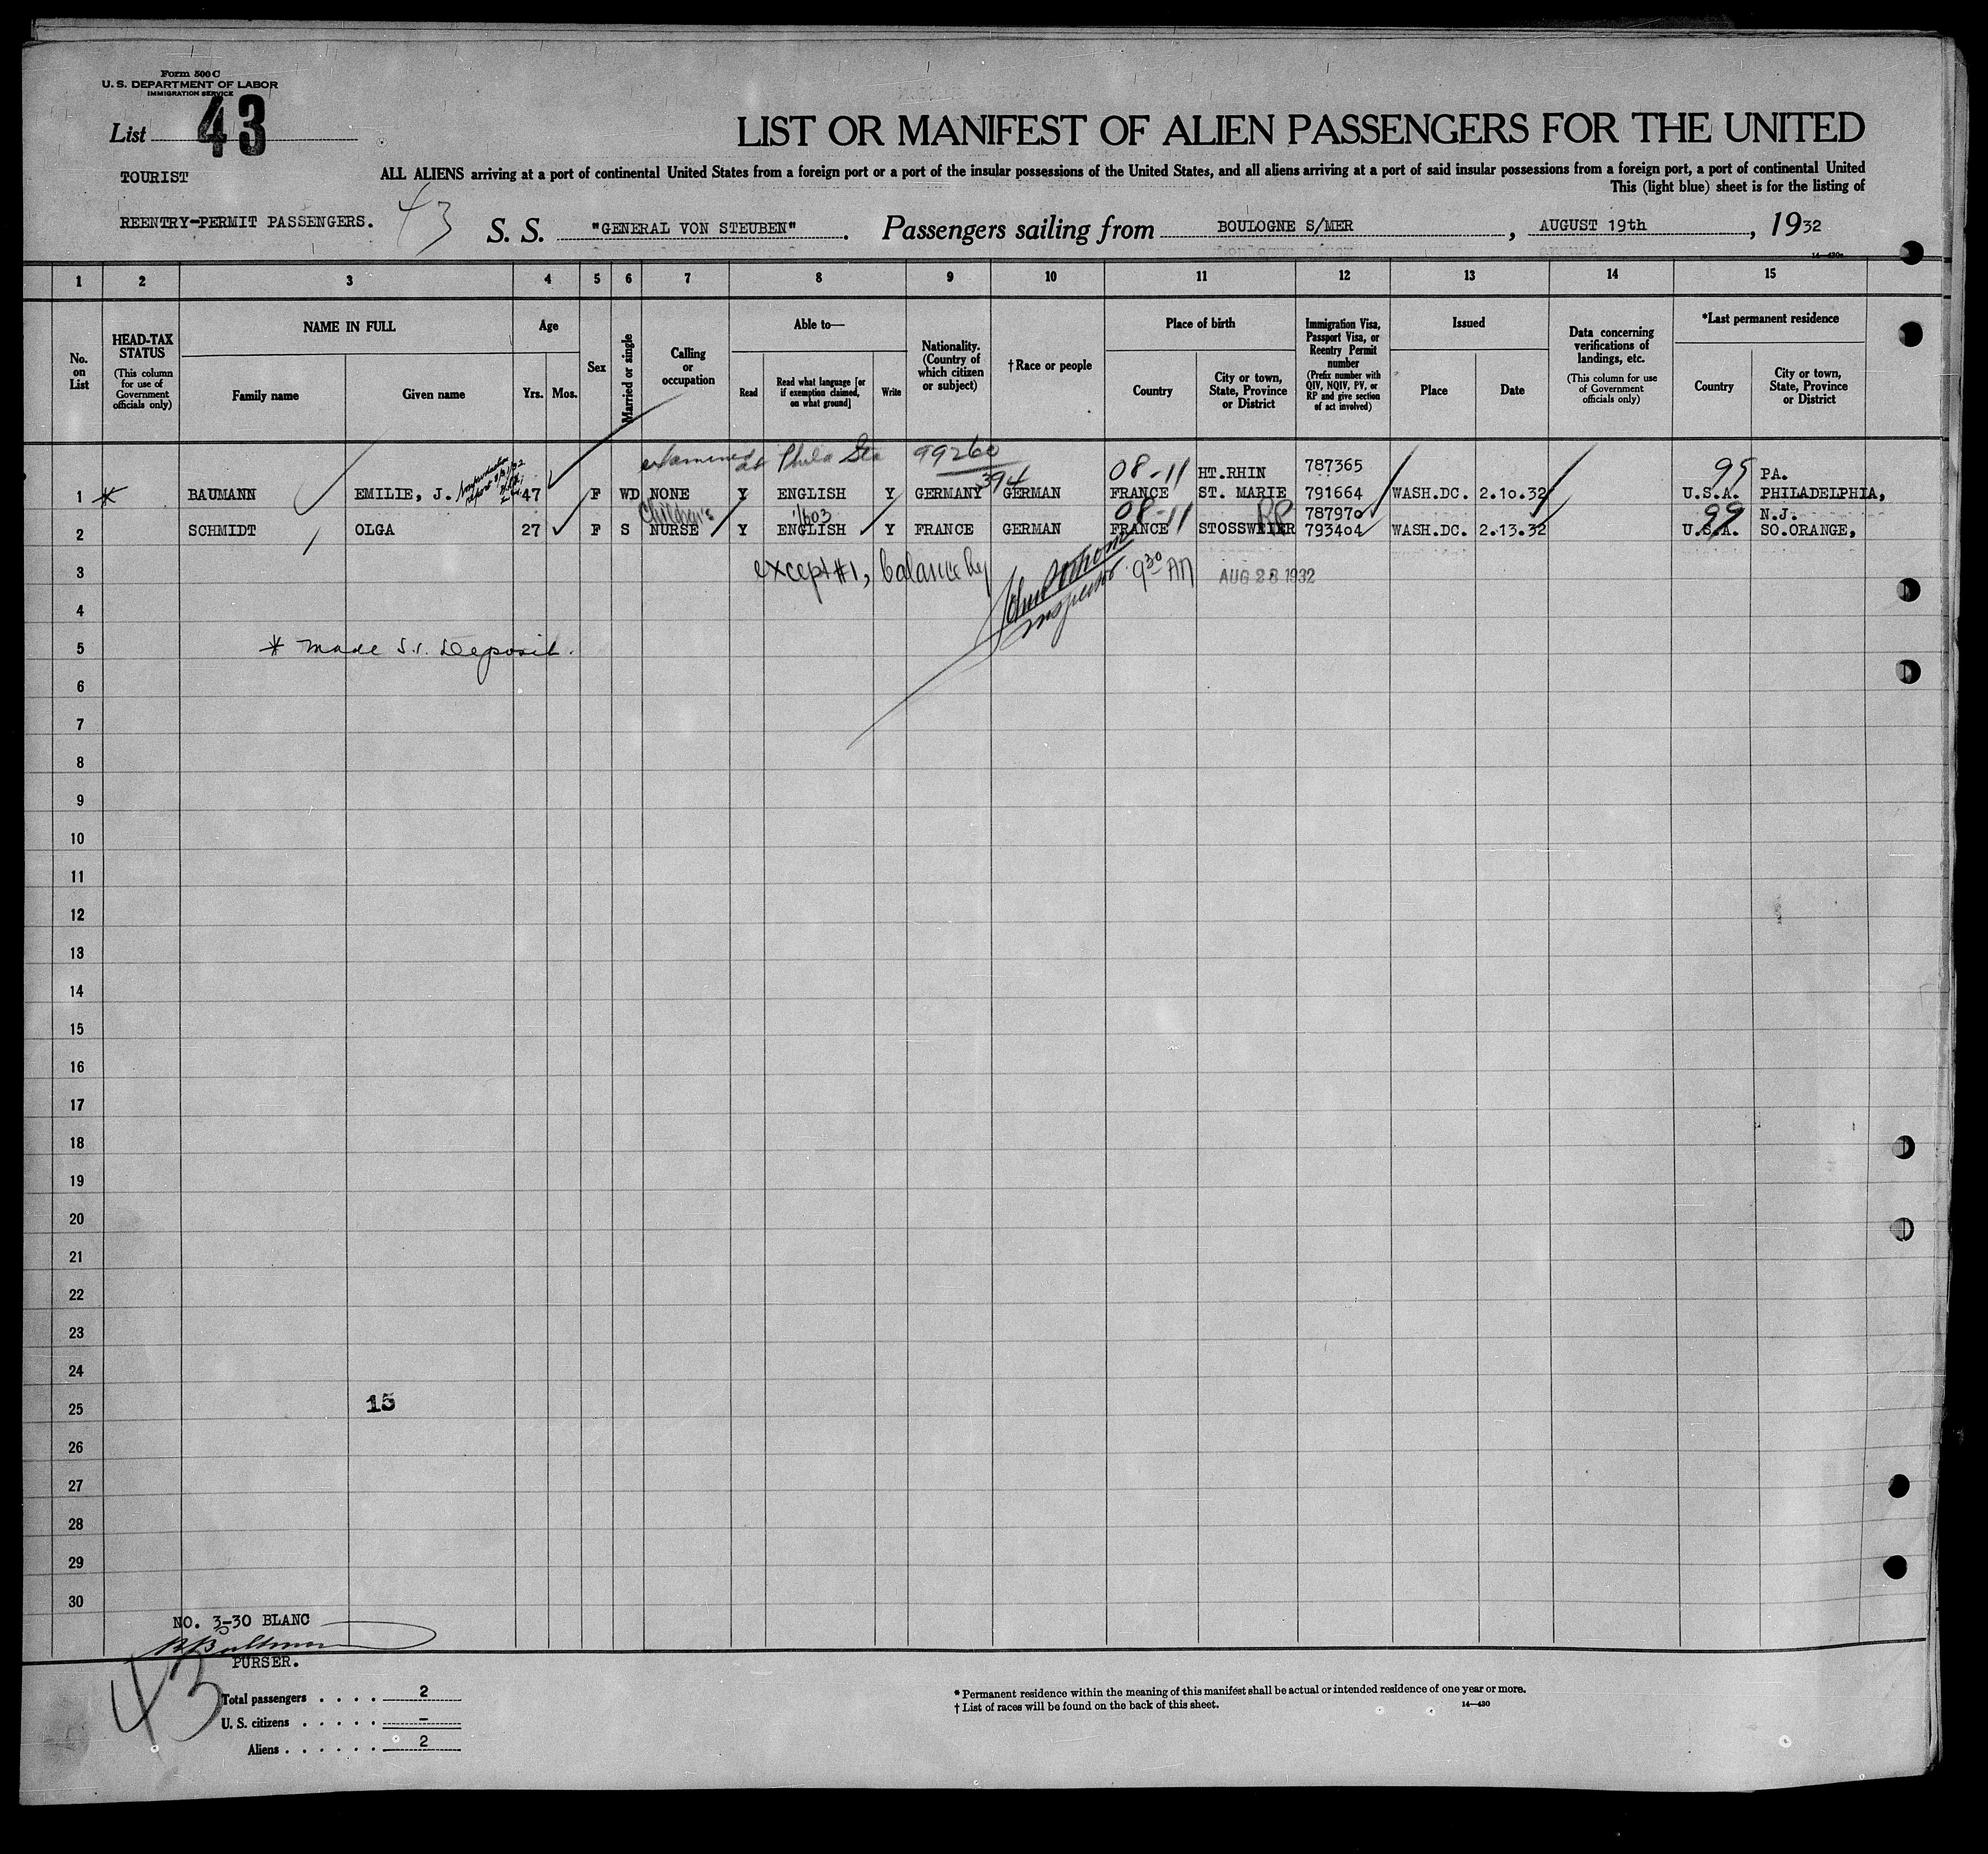 Form 500 C
U. S. DEPARTMENT OF LABOR
IMMIGRATION SERVICE
List 43
LIST OR MANIFEST OF ALIEN PASSENGERS FOR THE UNITED
TOURIST
ALL ALIENS arriving at a port of continental United States from a foreign port or a port of the insular possessions of the United States, and all aliens arriving at a port of said insular possessions from a foreign port, a port of continental United
This (light blue) sheet is for the listing of
REENTRY-PERMIT PASSENGERS. 43 S. S. "GENERAL VON STEUBEN". Passengers sailing from BOULOGNE S/MER, AUGUST 19th, 1932
14—430a
1 2 3 4 5 6 7 8 9 10 11 12 13 14 15
No. on List
HEAD-TAX STATUS (This column for use of Government officials only)
NAME IN FULL
Family name
Given name
Age
Yrs.
Mos.
Sex
Married or single
Calling or occupation
Able to—
Read
Read what language [or if exemption claimed, on what ground]
Write
Nationality. (Country of which citizen or subject)
†Race or people
Place of birth
Country
City or town, State, Province or District
Immigration Visa, Passport Visa, or Reentry Permit number (Prefix number with QIV, NQIV, PV, or RP and give section of act involved)
Issued
Place
Date
Data concerning verifications of landings, etc. (This column for use of Government officials only)
*Last permanent residence
Country
City or town, State, Province or District
examined at Phila Sta 99260
394 08-11 HT.RHIN 787365 95 PA.
1 * BAUMANN EMILIE, J. 47 F WD NONE Y ENGLISH Y GERMANY GERMAN FRANCE ST. MARIE 791664 WASH.DC. 2.10.32 U.S.A. PHILADELPHIA,
Children's 1/603 08-11 RP 787970 99 N.J.
2 SCHMIDT OLGA 27 F S NURSE Y ENGLISH Y FRANCE GERMAN FRANCE STOSSWEIER 793404 WASH.DC. 2.13.32 U.S.A. SO.ORANGE,
3 except #1, balance by Inspector 9 30 AM AUG 28 1932
4
5 * Made S.I. Deposit.
6
7
8
9
10
11
12
13
14
15
16
17
18
19
20
21
22
23
24
25 15
26
27
28
29
30
NO. 3-30 BLANC
PURSER.
43
Total passengers . . . . 2
U. S. citizens . . . . . –
Aliens . . . . . . 2
* Permanent residence within the meaning of this manifest shall be actual or intended residence of one year or more.
† List of races will be found on the back of this sheet. 14—430